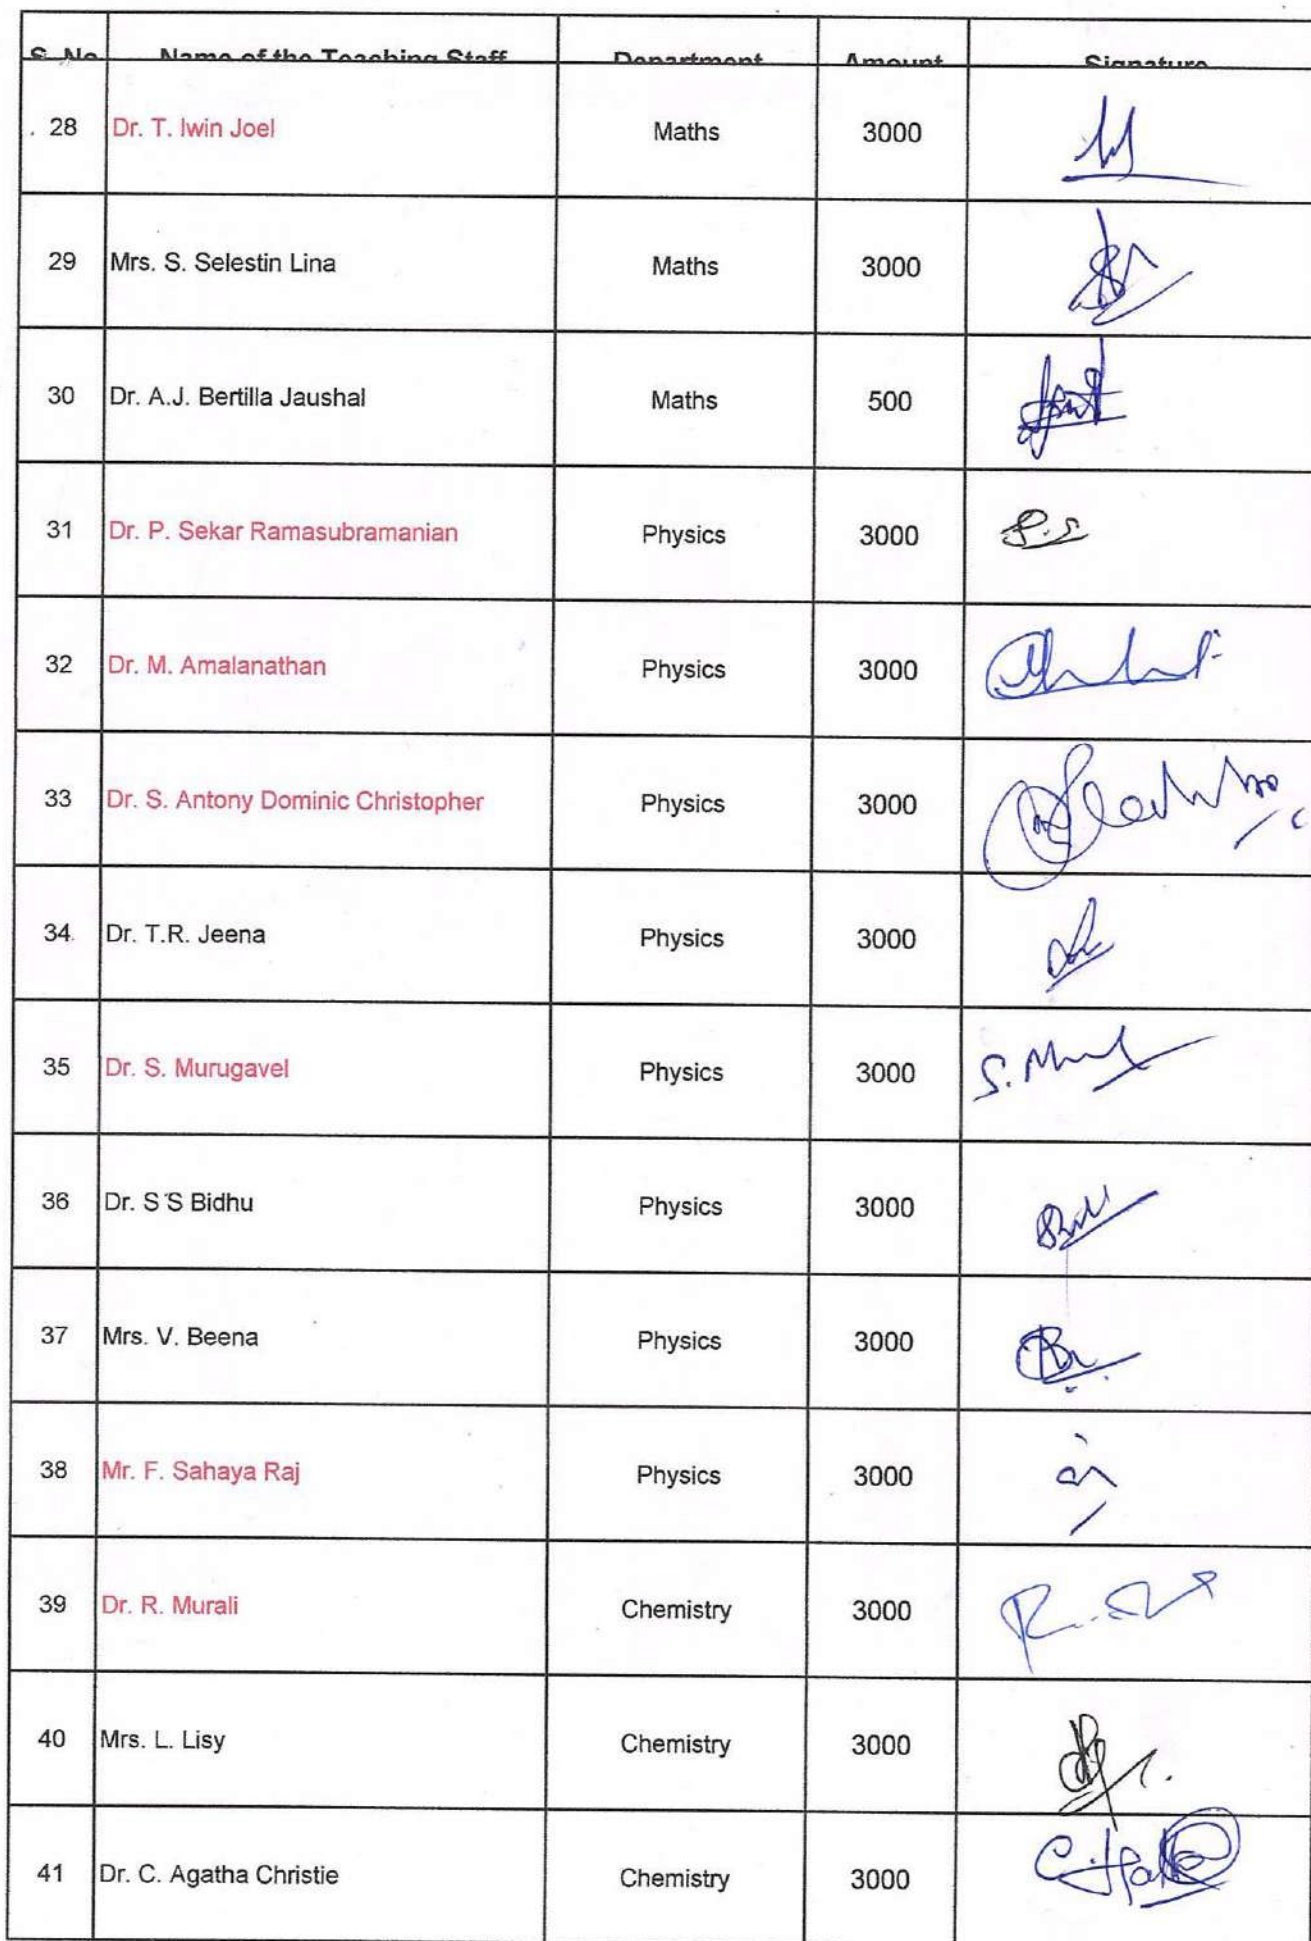 S. No Name of the Teaching Staff Department Amount Signature
28 Dr. T. Iwin Joel Maths 3000
29 Mrs. S. Selestin Lina Maths 3000
30 Dr. A.J. Bertilla Jaushal Maths 500
31 Dr. P. Sekar Ramasubramanian Physics 3000 P.S
32 Dr. M. Amalanathan Physics 3000
33 Dr. S. Antony Dominic Christopher Physics 3000
34 Dr. T.R. Jeena Physics 3000
35 Dr. S. Murugavel Physics 3000
36 Dr. S S Bidhu Physics 3000
37 Mrs. V. Beena Physics 3000
38 Mr. F. Sahaya Raj Physics 3000
39 Dr. R. Murali Chemistry 3000
40 Mrs. L. Lisy Chemistry 3000
41 Dr. C. Agatha Christie Chemistry 3000